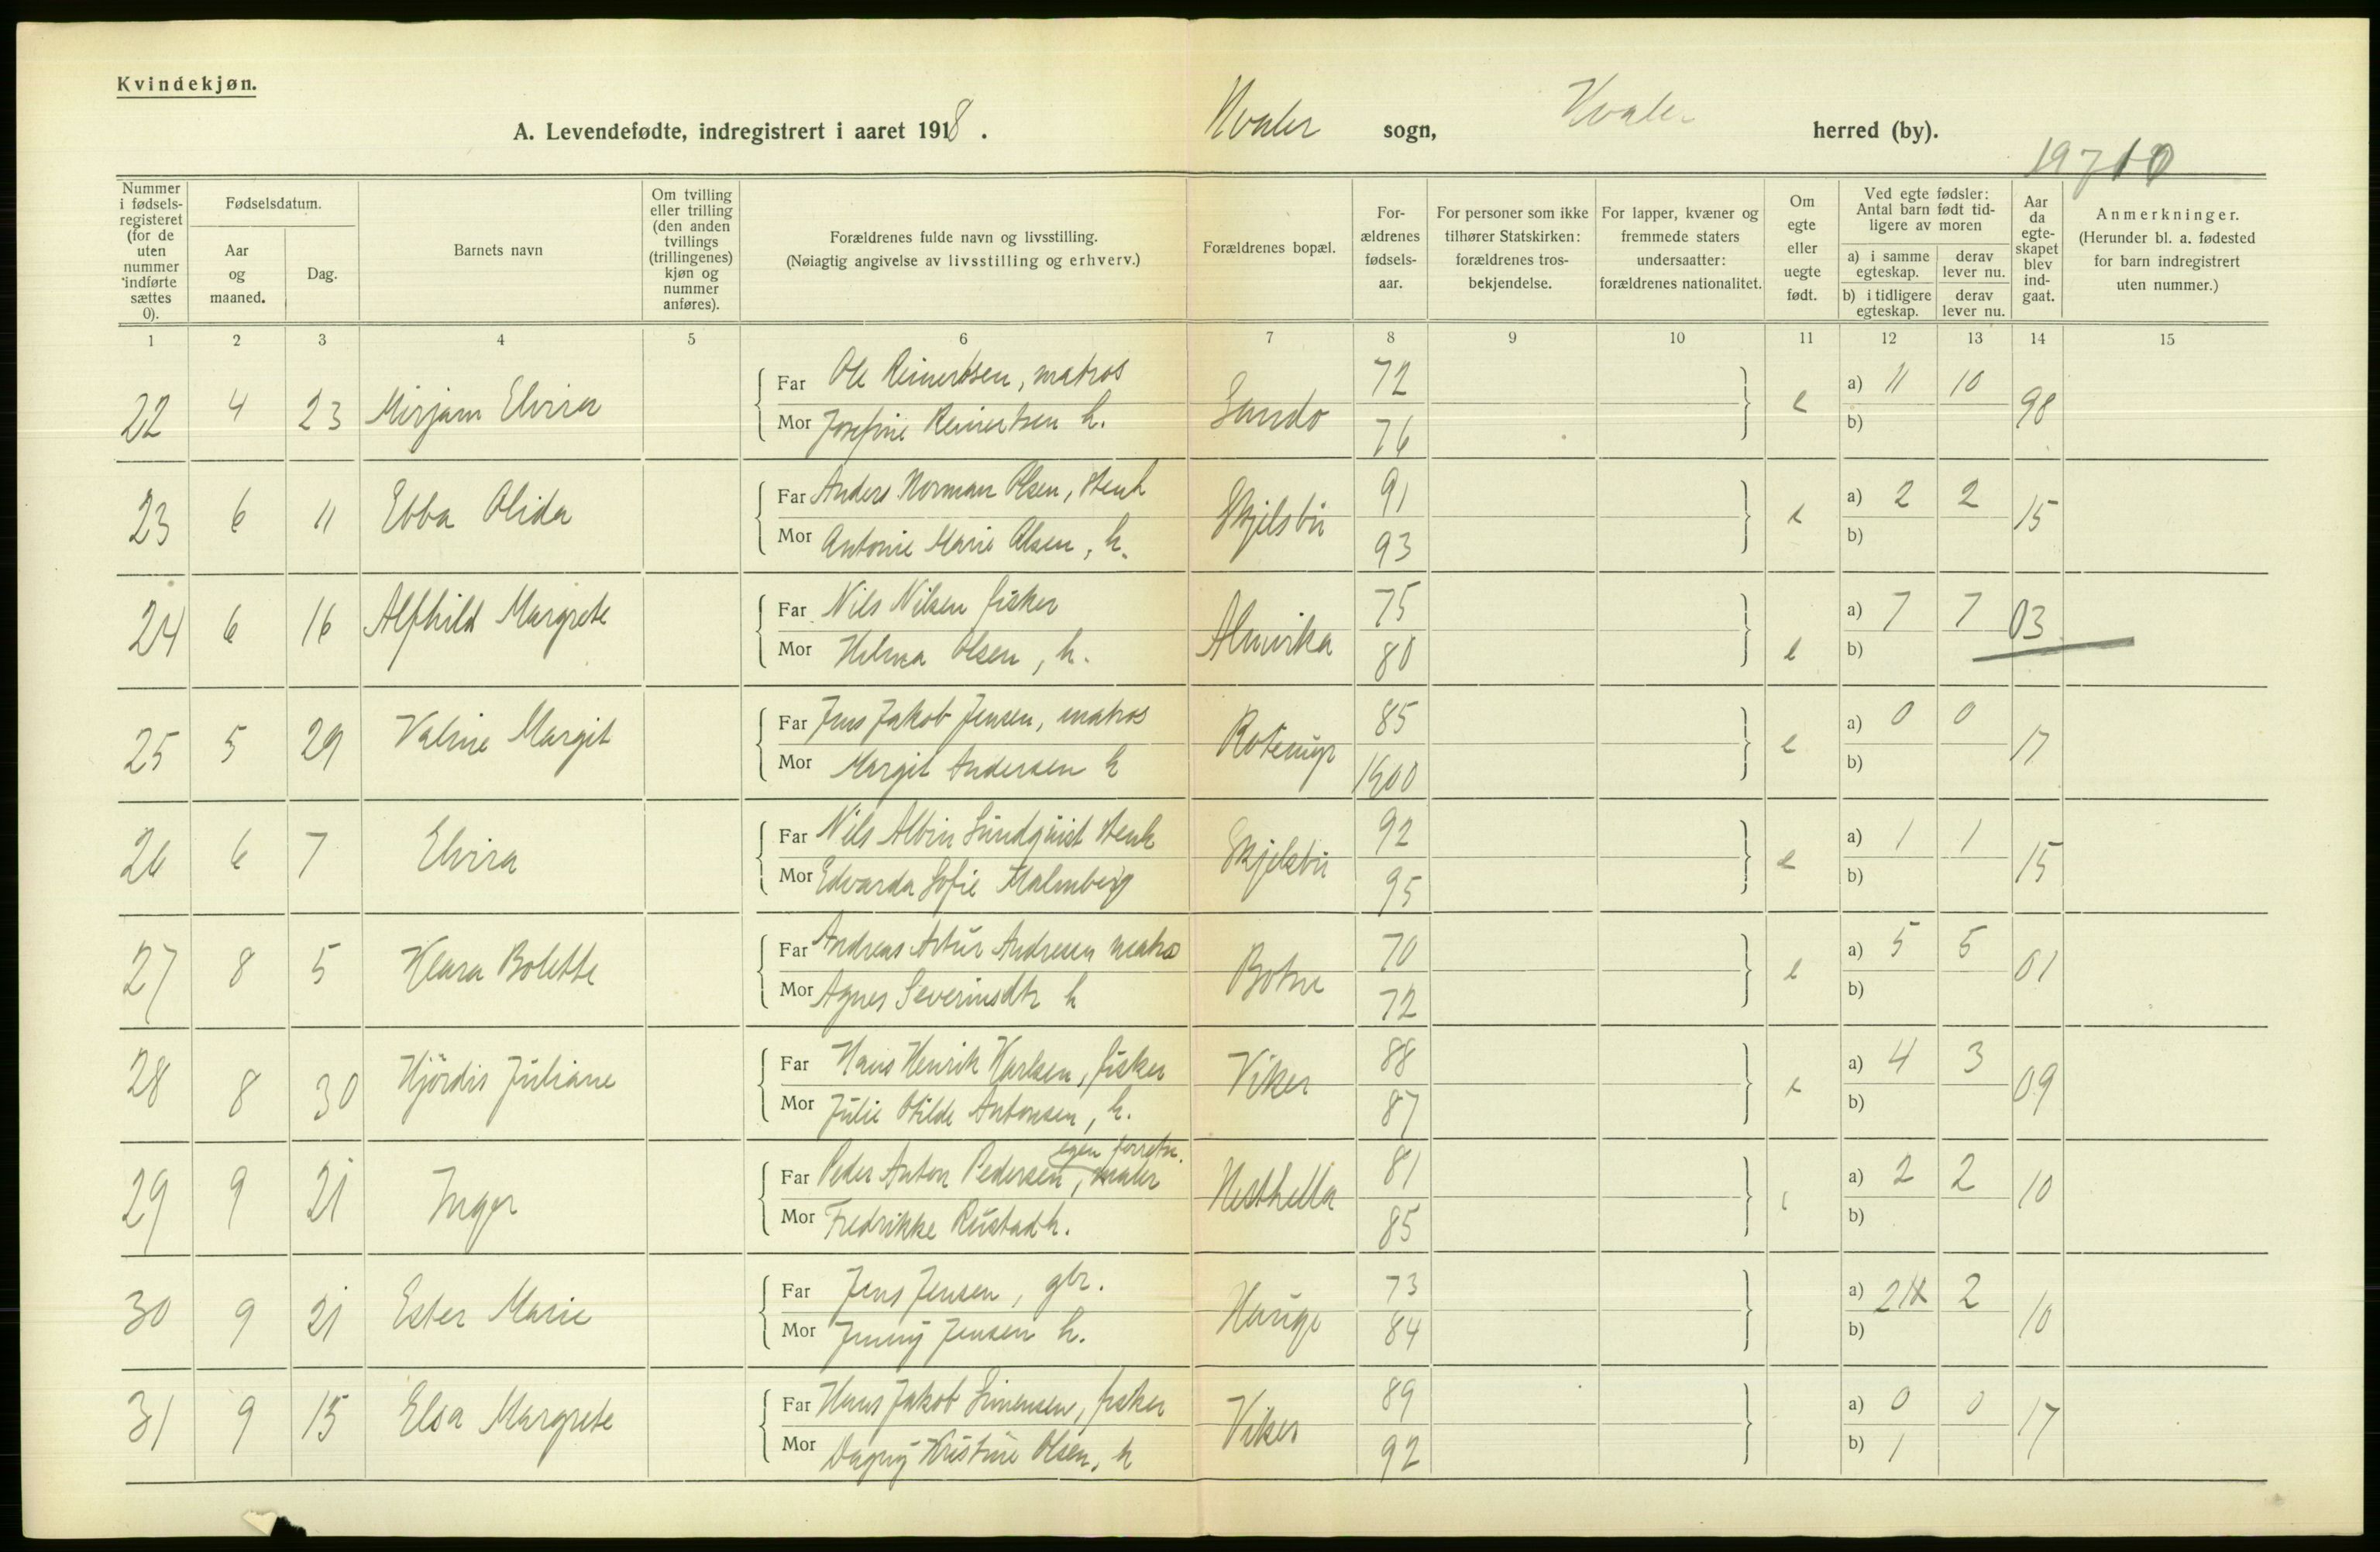 Kvindekjøn.
A. Levendefødte, indregistrert i aaret 1918. Hvaler sogn, Hvaler herred (by).
19710
Nummer i fødselsregisteret (for de uten nummer indførte sættes 0).
Fødselsdatum.
Aar og maaned.
Dag.
Barnets navn
Om tvilling eller trilling (den anden tvillings (trillingenes) kjøn og nummer anføres).
Forældrenes fulde navn og livsstilling. (Nøiagtig angivelse av livsstilling og erhverv.)
Forældrenes bopæl.
Forældrenes fødselsaar.
For personer som ikke tilhører Statskirken: forældrenes trosbekjendelse.
For lapper, kvæner og fremmede staters undersaatter: forældrenes nationalitet.
Om egte eller uegte født.
Ved egte fødsler: Antal barn født tidligere av moren
a) i samme egteskap. derav lever nu.
b) i tidligere egteskap. derav lever nu.
Aar da egteskapet blev indgaat.
Anmerkninger. (Herunder bl. a. fødested for barn indregistrert uten nummer.)
1 2 3 4 5 6 7 8 9 10 11 12 13 14 15
22 4 23 Mirjam Elvira Far Ole Reinertsen, matros Sando 72 e a) 11 10 98
Mor Josefine Reinertsen h. 76 b)
23 6 11 Ebba Olida Far Anders Norman Olsen, stenh Skjelsbu 91 e a) 2 2 15
Mor Antonie Marie Olsen, h. 93 b)
24 6 16 Alfhild Margrete Far Nils Nilsen fisker 75 e a) 7 7 03
Mor Helma Olsen, h. 80 b)
25 5 29 Valine Margit Far Jens Jakob Jensen, matros 85 e a) 0 0 17
Mor Margit Andersen h 1900 b)
26 6 7 Elvira Far Nils Albin Lundquist stenh Skjelsbu 92 e a) 1 1 15
Mor Edvarda Sofie Malmberg 95 b)
27 8 5 Klara Bolette Far Andreas Artur Andresen matros Botne 70 e a) 5 5 01
Mor Agnes Severinsdtr h 72 b)
28 8 30 Hjördis Juliane Far Hans Henrik Karlsen, fisker Viker 88 e a) 4 3 09
Mor Julie Otilde Antonsen, h. 87 b)
egen forretn.
29 9 21 Inger Far Peder Anton Pedersen, maler Nesthella 81 e a) 2 2 10
Mor Fredrikke Rustad h. 85 b)
30 9 21 Ester Marie Far Jens Jensen, gbr. Hauge 73 a) 2 2 10
Mor Jenny Jensen h. 84 b)
31 9 15 Elsa Margrete Far Hans Jakob Simensen, fisker Viker 89 a) 0 0 17
Mor Dagny Kristine Olsen, h 92 b) 1